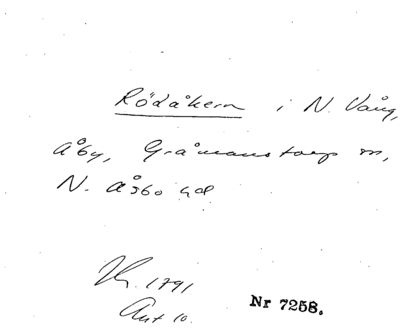 Rödåkern i N. Vång,
Åby, Gråmanstorp sn,
N. Åsbo hd
Kr. 1791
Akt 10.
Nr 7258.